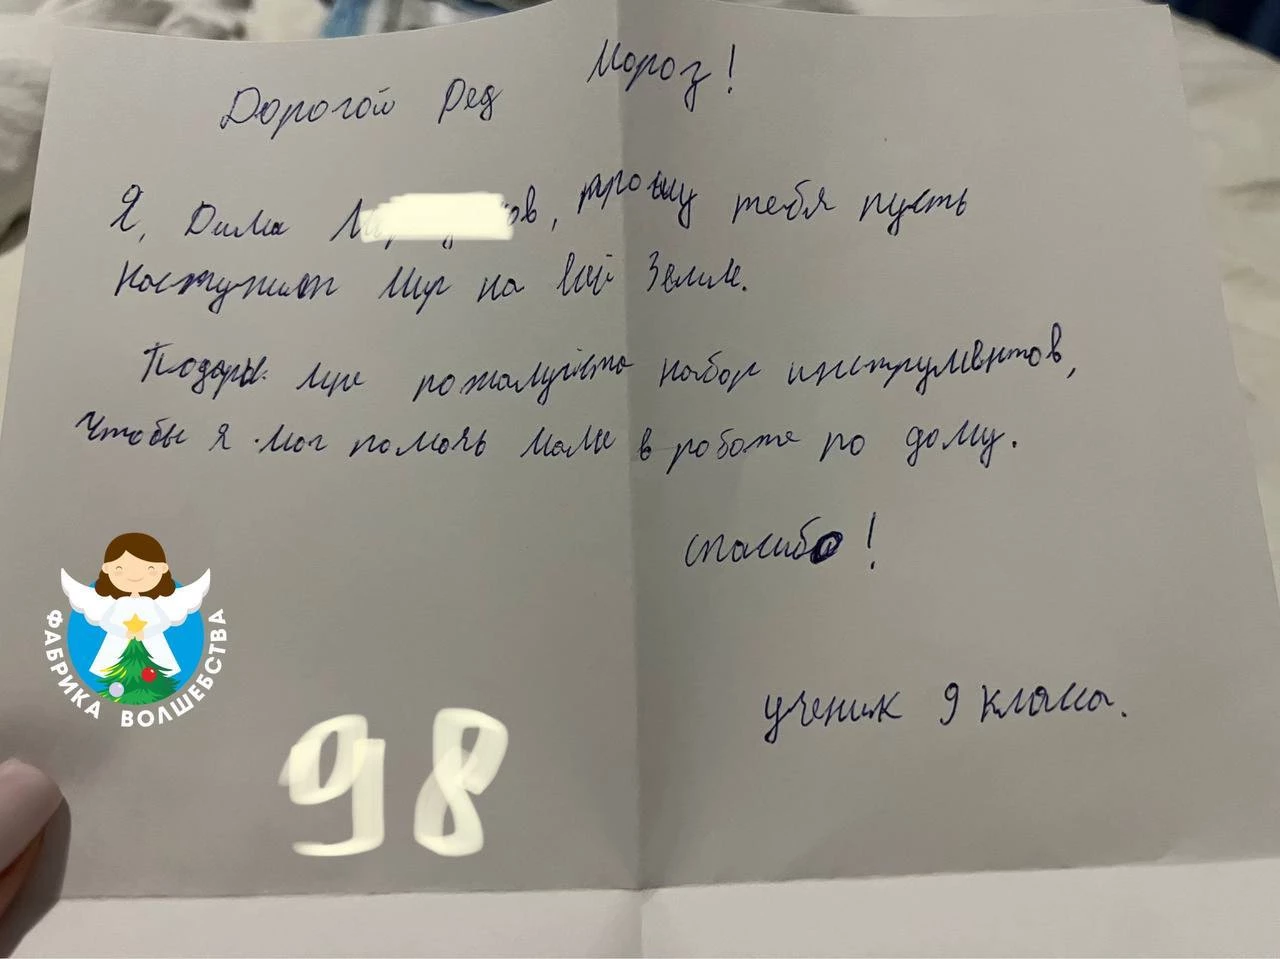 Дорогой Дед Мороз!
Я, Дима М ов, прошу тебя пусть
наступит Мир на всей Земле.
Подари мне пожалуйста набор инструментов,
Чтобы я мог помочь маме в работе по дому.
спасибо!
ученик 9 класса.
ФАБРИКА ВОЛШЕБСТВА
98